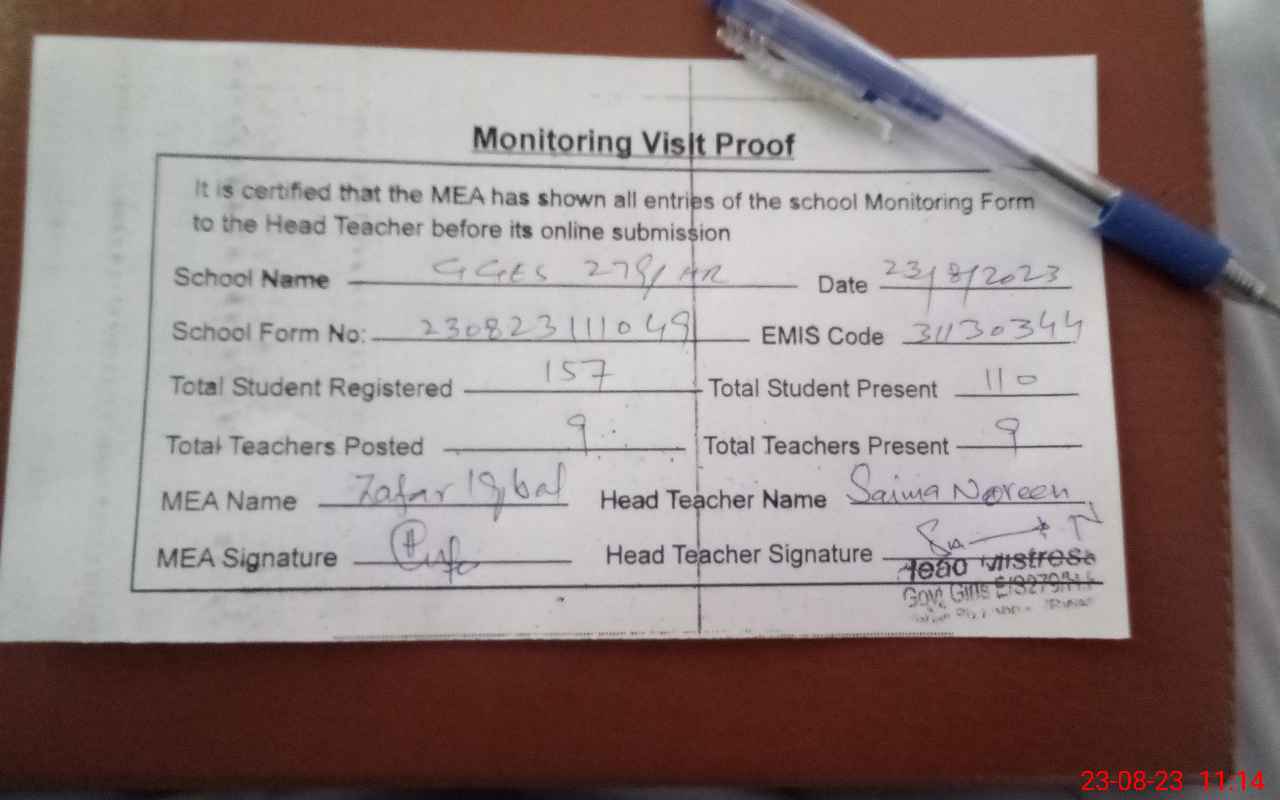 Monitoring Visit Proof
It is certified that the MEA has shown all entries of the school Monitoring Form
to the Head Teacher before its online submission
School Name GGES 279/HR Date 23/8/2023
School Form No: 230823111049 EMIS Code 31130344
Total Student Registered 157 Total Student Present 110
Total Teachers Posted 9 Total Teachers Present 9
MEA Name Zafar Iqbal Head Teacher Name Saima Noreen
MEA Signature Head Teacher Signature
Head Mistress
Govt Girls E/S279/H.R
23-08-23 11:14